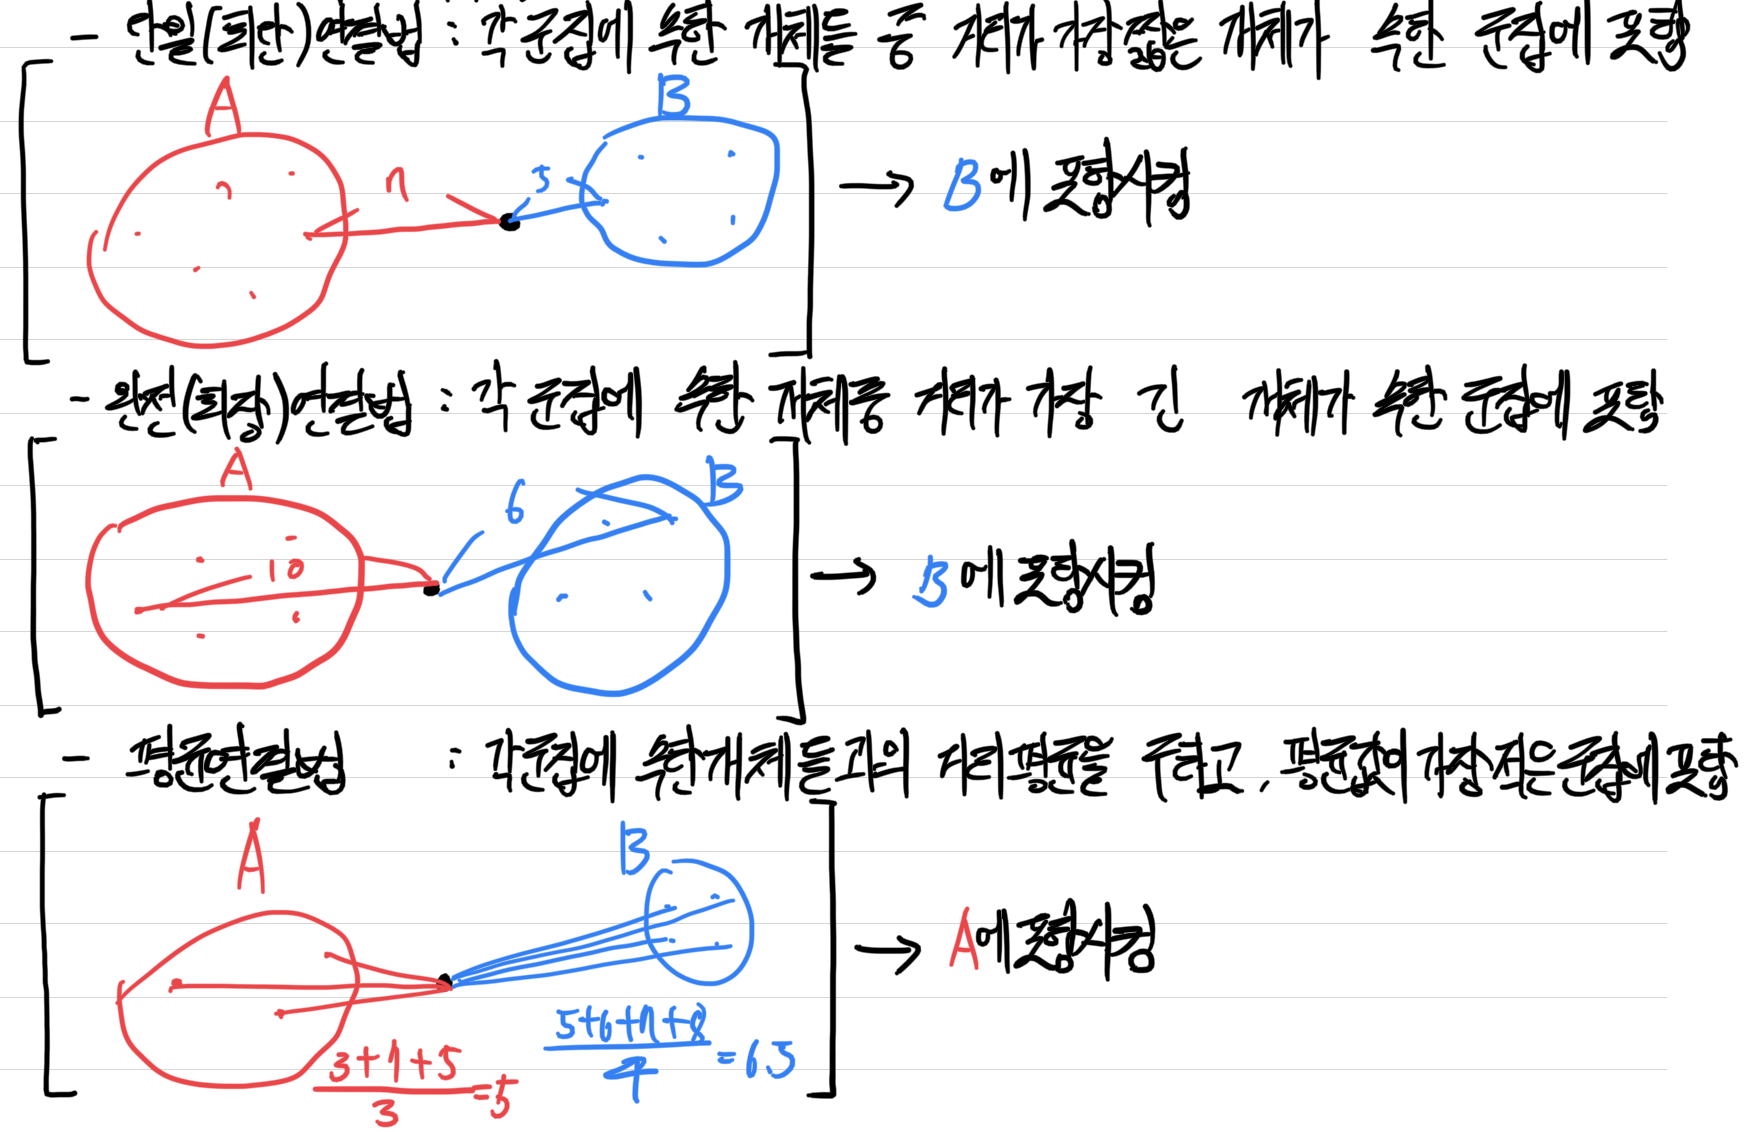 - 단일(최단)연결법 : 각 군집에 속한 개체들 중 거리가 가장 짧은 개체가 속한 군집에 포함
A
B
7
5
→ B에 포함시킴
- 완전(최장)연결법 : 각 군집에 속한 개체중 거리가 가장 긴 개체가 속한 군집에 포함
A
B
10
6
→ B에 포함시킴
- 평균연결법 : 각군집에 속한개체들과의 거리평균을 구하고, 평균값이가장적은군집에포함
A
B
→ A에포함시킴
3+7+5/3=5
5+6+7+8/4=6.5